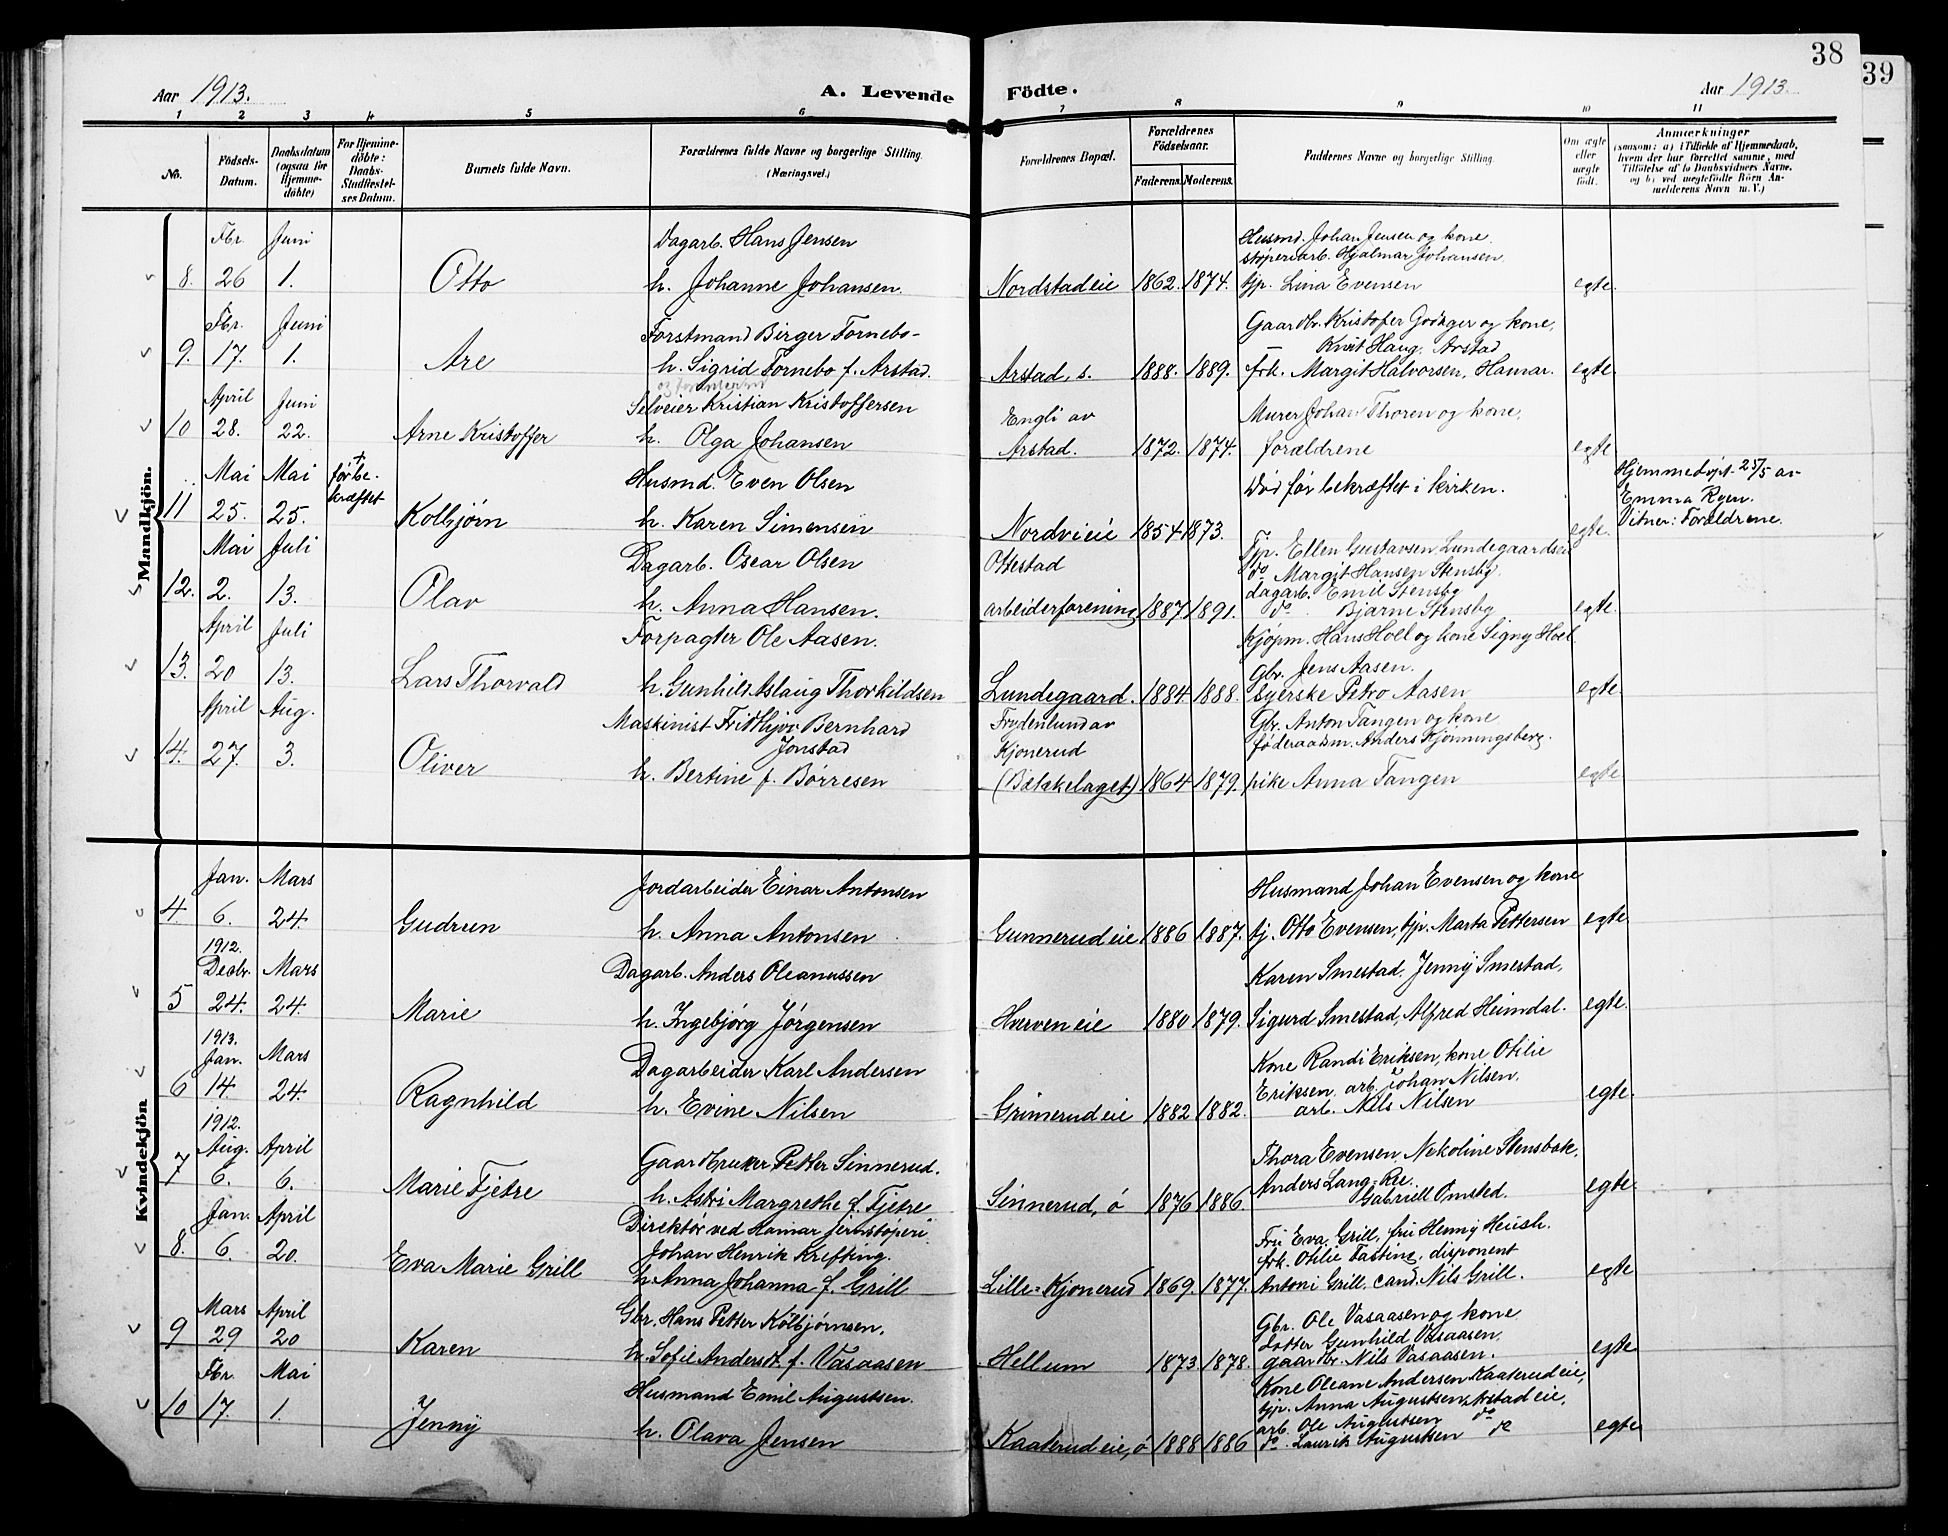 38
39
Aar 1913.
A. Levende Födte.
Aar 1913.
1 2 3 4 5 6 7 8 9 10 11
No.
Födsels-Datum.
Daabsdatum (ogsaa for Hjemme-döbte)
For Hjemme-döbte: Daabs-Stadfæstel-ses Datum.
Barnets fulde Navn.
Forældrenes fulde Navne og borgerlige Stilling.
(Næringsvei.)
Forældrenes Bopæl.
Forældrenes Födselsaar.
Faderens. Moderens.
Faddernes Navne og borgerlige Stilling.
Om ægte eller uægte födt.
Anmærkninger
(saasom: a) i Tilfælde af Hjemmedaab, hvem der har forrettet samme, med Tilföielse af to Daabsvidners Navne, og b) ved uægtefödte Börn Anmelderens Navn m. V.)
Mandkjön.
Fbr. Juni Dagarb. Hans Jensen Husmd. Johan Jensen og kone.
støperiarb. Hjalmar Johansen.
8. 26 1. Otto h. Johanne Johansen. Nordstadeie 1862. 1874. tjp. Lina Evensen egte.
Fbr. Juni Forstmand Birger Tornebo- Gaardbr. Kristofer Godager og kone,
Knut Haug, Arstad
9. 17. 1. Are h. Sigrid Tornebo f. Arstad. Arstad, s. 1888. 1889. frk. Margit Halvorsen, Hamar. egte
April Juni Selveier Kristian Kristoffersen Engli av Murer Johan Thoren og kone,
10 28. 22. Arne Kristoffer h. Olga Johansen Arstad. 1872. 1874. forældrene egte
Mai Mai + før be-kræftet Husmd. Even Olsen Død før bekræftet i kirken. Hjemmedøpt 25/5 av
Emma Ryen.
Vitner: Forældrene.
11 25. 25. Kolbjørn h. Karen Simensen Nordvieie 1854 1873. egte.
Mai Juli Dagarb. Oscar Olsen Ottestad Tjp. Ellen Gustavsen Lundegaardseie
do Margit Hansen Stensby.
dagarb. Emil Stensby
12. 2. 13. Olav h. Anna Hansen. arbeiderforening 1887 1891. do Bjarne Stensby egte.
April Juli Forpagter Ole Aasen. Kjøpm. Hans Hoel og kone Signy Hoel
Gbr. Jens Aasen.
13. 20 13. Lars Thorvald h. Gunhild Aslaug Thorkildsen Lundegaard. 1884. 1888. Petro Aasen egte
April Aug. Maskinist Fridthjov Bernhard Jonstad Frydenlund av Kjonerud Gbr. Anton Tangen og kone
føderaadsm. Anders Kjønningsberg.
14. 27. 3. Oliver h. Bertine f. Børresen (Bækkelaget) 1864 1879. pike Anna Tangen egte
Kvindekjön
Jan. Mars Jordarbeider Einar Antonsen Husmand Johan Evensen og kone
4. 6. 24. Gudrun h. Anna Antonsen Gunnerudeie 1886 1887. tj. Otto Evensen, tjp. Marta Pettersen egte
1912. Decbr. Mars Dagarb. Anders Oleanussen Karen Smestad, Jenny Smestad,
5 24. 24. Marie h. Ingebjørg Jørgensen Hverveneie 1880 1879. Sigurd Smestad, Alfred Heimdal. egte.
1913. Jan. Mars Dagarbeider Karl Andersen Kone Randi Eriksen, kone Otilie
Eriksen, arb. Johan Nilsen.
6 14. 24. Ragnhild h. Evine Nilsen Grimerudeie 1882 1882. arb. Nils Nilsen egte.
1912. Aug. April Gaardbruker Petter Sinnerud. Thora Evensen, Nekoline Stensbak,
Anders Lang-Ree.
7 6. 6. Marie Fjetre h. Astri Margrethe f. Fjetre Sinnerud, ö 1876 1886 Gabriell Omsted. egte.
Jan. April Direktør ved Hamar jernstøperi Johan Henrik Krefting. Fru Eva Grill, fru Henny Heush.
frk. Otilie Fasting, disponent
8. 6. 20. Eva Marie Grill h. Anna Johanna f. Grill Lille-Kjonerud 1869. 1877. Antoni Grill, cand. Nils Grill. egte
Mars April Gbr. Hans Petter Kolbjørnsen. Gbr. Ole Vasaasen og kone
Gunhild Vasaasen.
9 29 20 Karen h. Sofie Andersdt. f. Vasaasen Hellum 1873 1878. gaardbr. Nils Vasaasen. egte
Fbr. Mai Husmand Emil Augustsen. Kone Oleane Andersen Kaaterudeie,
tjp. Anna Augustsen, Arstadeie,
arb. Ole Augustsen do
10 17. 1. Jenny h. Olava Jensen Kaaterudeie, ö 1888 1886 do. Laurits Augustsen do egte